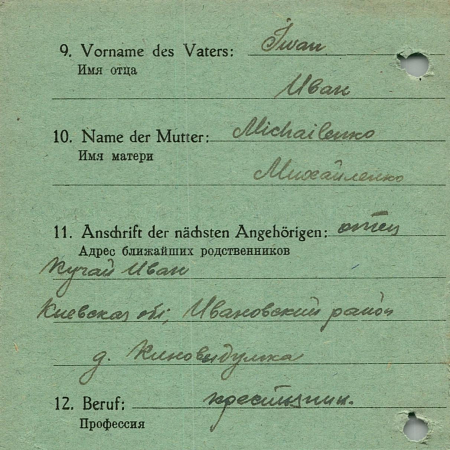 9. Vorname des Vaters: Iwan
Имя отца
Иван
10. Name der Mutter: Michailenko
Имя матери
Михайленко
11. Anschrift der nächsten Angehörigen: отец
Адрес ближайших родственников
Кучай Иван
Киевская обл, Ивановский район
д.
12. Beruf: крестьянин.
Профессия